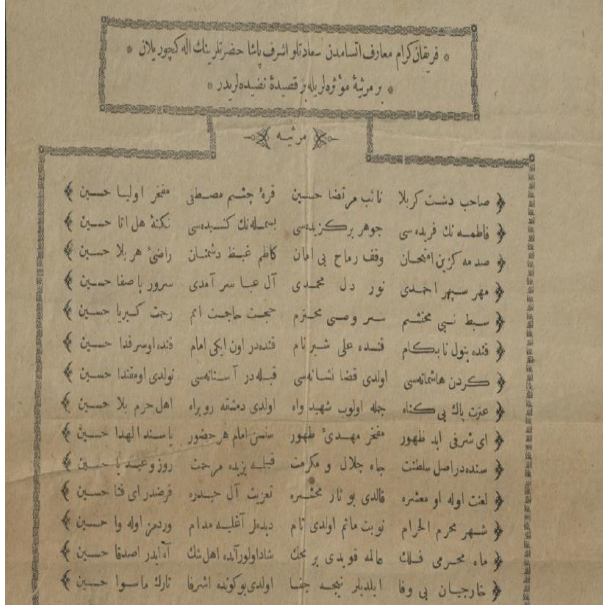 فریقان کرام معارف اتسامدن سعادتلو اشرف پاشا حضرتلرینك اله کچوریلان
بر مرثیهٔ مؤثره‌لریله بر قصیدهٔ نضیده‌لریدر
مرثیه
صاحب دشت کربلا نائب مرتضا حسین قرهٔ چشم مصطفی مفخر اولیا حسین
فاطمه نك فریده سی جوهر برکزیده‌سی بسمله‌نك کشیده‌سی نکتهٔ هل اتا حسین
صدمه کزین امتحان وقف رماح بی امان کاظم غیظ دشمنان راضیٔ هر بلا حسین
مهر سپهر احمدی نور دل محمدی آل عبا سر آمدی سرور با صفا حسین
سبط نبی محتشم سر وصی محترم حجت حاجت اتم رحمت کبریا حسین
قنده بتول نابکام قنده علی شیر نام قنده‌در اون ایکی امام قنده اوسرفدا حسین
کردن هاشمانه‌سی اولدی قضا نشانه‌سی قبله‌در آستانه‌سی نولدی اومقتدا حسین
عترت پاك بی کناه جمله اولوب شهید واه اولدی دمشقه روبراه اهل حرم بلا حسین
ای شرفی ابد ظهور مفخر مهدیٔ ظهور سنسن امام هر حضور یا سند الهدا حسین
سنده‌در اصل سلطنت جاه جلال و مکرمت قیله یزیده مرحمت روز وعید یا حسین
لعنت اوله او معشره قالدی بو ثار محشره تعزیت آل حیدره فرضدر ای فتا حسین
شهر محرم الحرام نوبت ماتم اولدی تام دیده‌لر آغلیه مدام وردمز اوله وا حسین
ماه محرمی فلك عالمه قویدی بر محك شاداولورآنده اهل شك آه ایدر اصدقا حسین
خارجیان بی وفا ایلدیلر نیجه جفا اولدی بوکونده اشرفا تارك ماسوا حسین